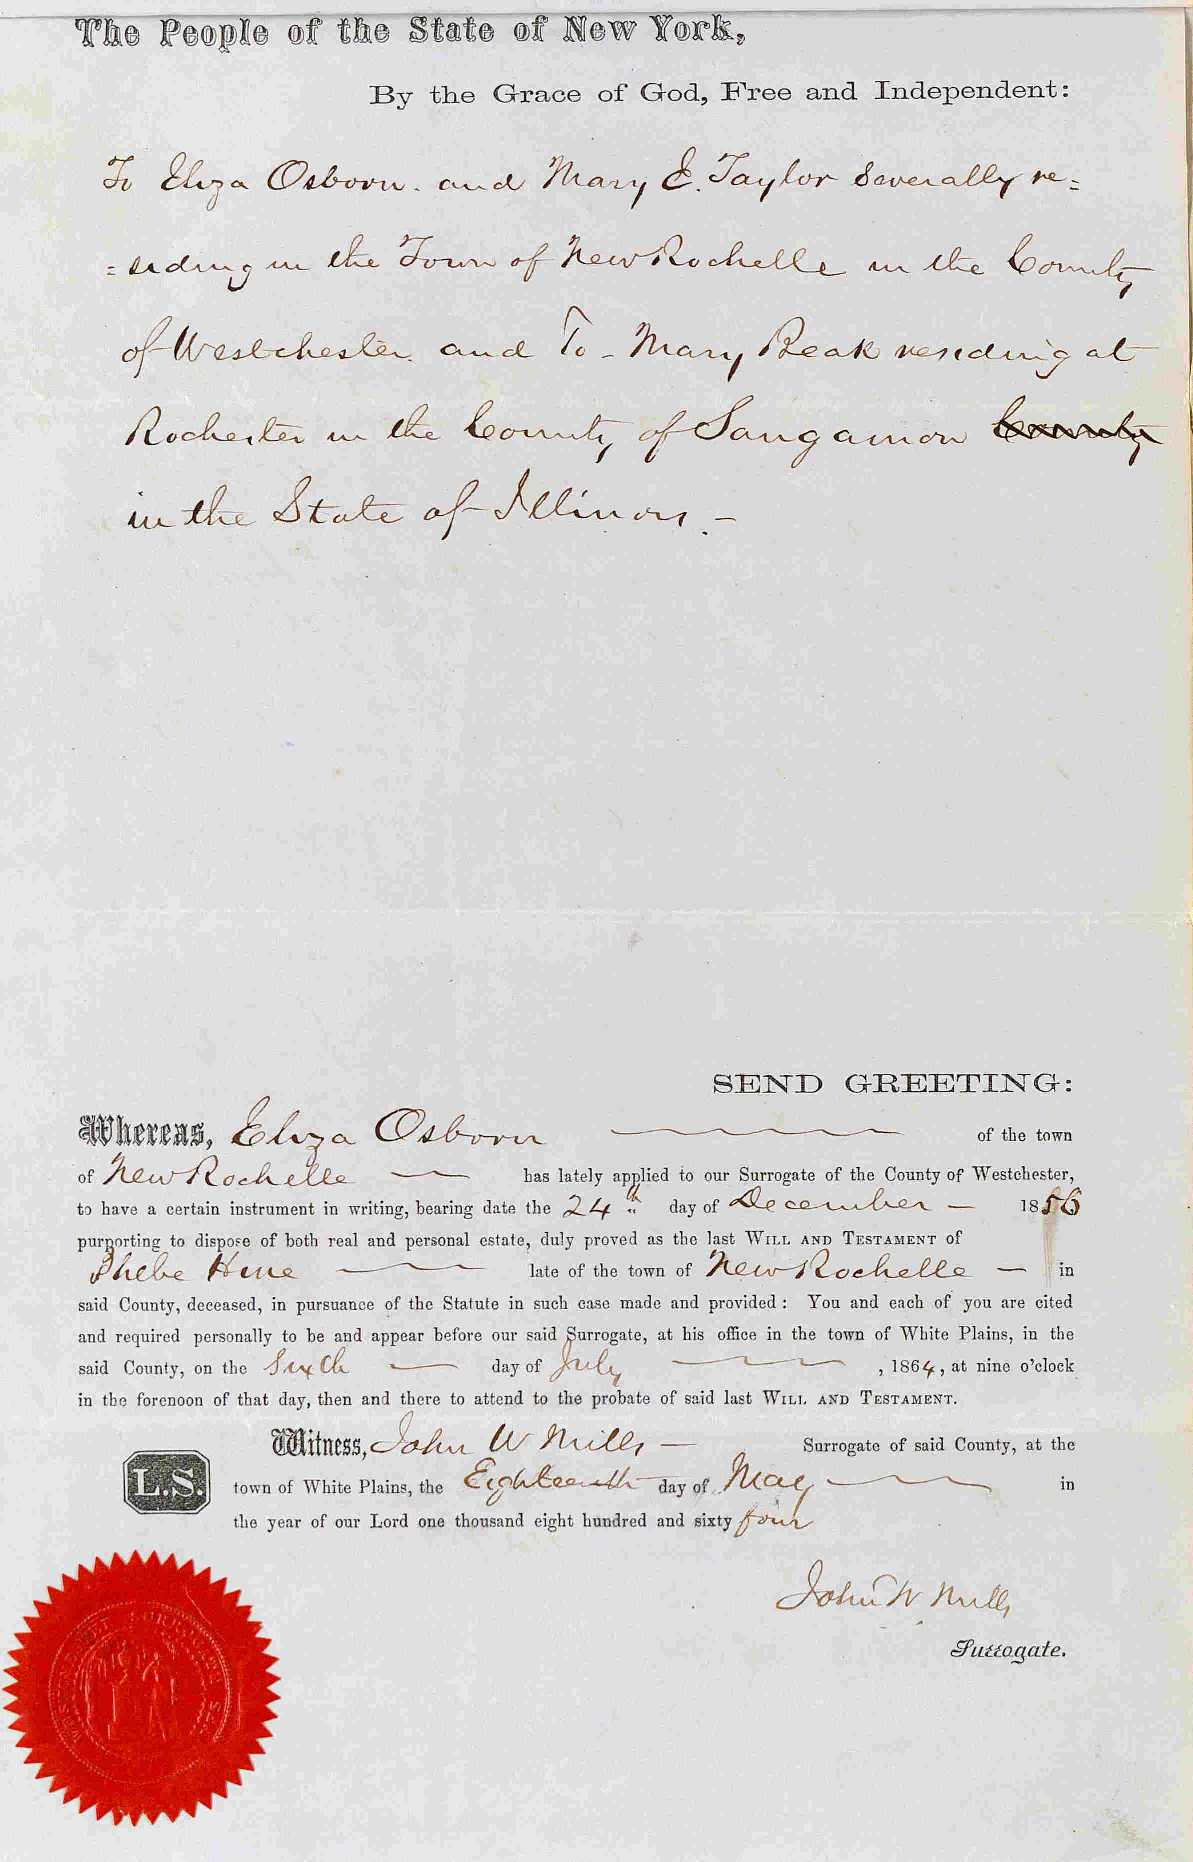 The People of the State of New York,
By the Grace of God, Free and Independent:
To Eliza Osborn. and Mary E. Taylor Severally re=
=siding in the Town of New Rochelle in the County
of Westchester. and To - Mary Beak residing at
Rochester in the County of Sangamon County
in the State of Illinois. -
SEND GREETING:
Whereas, Eliza Osborn of the town
of New Rochelle has lately applied to our Surrogate of the County of Westchester,
to have a certain instrument in writing, bearing date the 24th day of December 1856
purporting to dispose of both real and personal estate, duly proved as the last WILL AND TESTAMENT of
Phebe late of the town of New Rochelle in
said County, deceased, in pursuance of the Statute in such case made and provided: You and each of you are cited
and required personally to be and appear before our said Surrogate, at his office in the town of White Plains, in the
said County, on the Sixth day of July , 1864, at nine o'clock
in the forenoon of that day, then and there to attend to the probate of said last WILL AND TESTAMENT.
Witness, John W Mills Surrogate of said County, at the
L.S. town of White Plains, the Eighteenth day of May in
the year of our Lord one thousand eight hundred and sixty four
John W Mills
Surrogate.